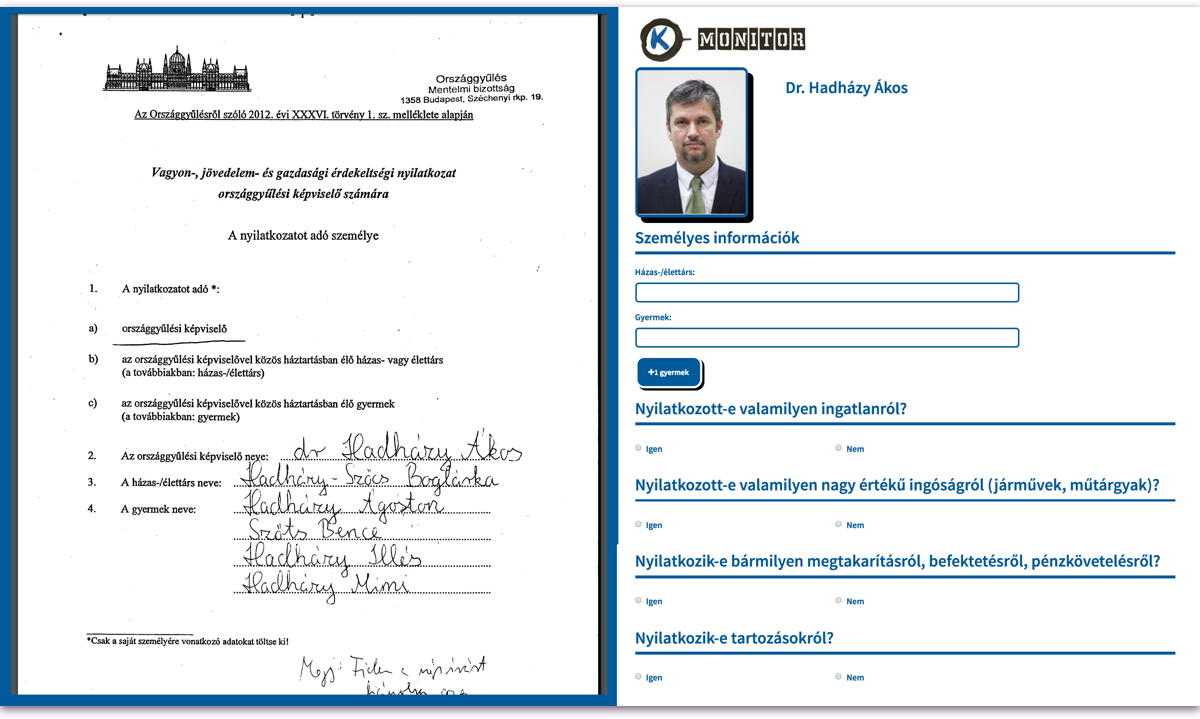 Országgyűlés
Mentelmi bizottság
1358 Budapest, Széchenyi rkp. 19.
Az Országgyűlésről szóló 2012. évi XXXVI. törvény 1. sz. melléklete alapján
Vagyon-, jövedelem- és gazdasági érdekeltségi nyilatkozat
országgyűlési képviselő számára
A nyilatkozatot adó személye
1. A nyilatkozatot adó *:
a) országgyűlési képviselő
b) az országgyűlési képviselővel közös háztartásban élő házas- vagy élettárs
(a továbbiakban: házas-/élettárs)
c) az országgyűlési képviselővel közös háztartásban élő gyermek
(a továbbiakban: gyermek)
2. Az országgyűlési képviselő neve: dr Hadházy Ákos
3. A házas-/élettárs neve: Hadházy-Szőcs Boglárka
4. A gyermek neve: Hadházy Ágoston
Szőts Bence
Hadházy Illés
Hadházy Mimi
*Csak a saját személyére vonatkozó adatokat töltse ki!
Megj: a
K MONITOR
Dr. Hadházy Ákos
Személyes információk
Házas-/élettárs:
Gyermek:
+1 gyermek
Nyilatkozott-e valamilyen ingatlanról?
Igen Nem
Nyilatkozott-e valamilyen nagy értékű ingóságról (járművek, műtárgyak)?
Igen Nem
Nyilatkozik-e bármilyen megtakarításról, befektetésről, pénzkövetelésről?
Igen Nem
Nyilatkozik-e tartozásokról?
Igen Nem